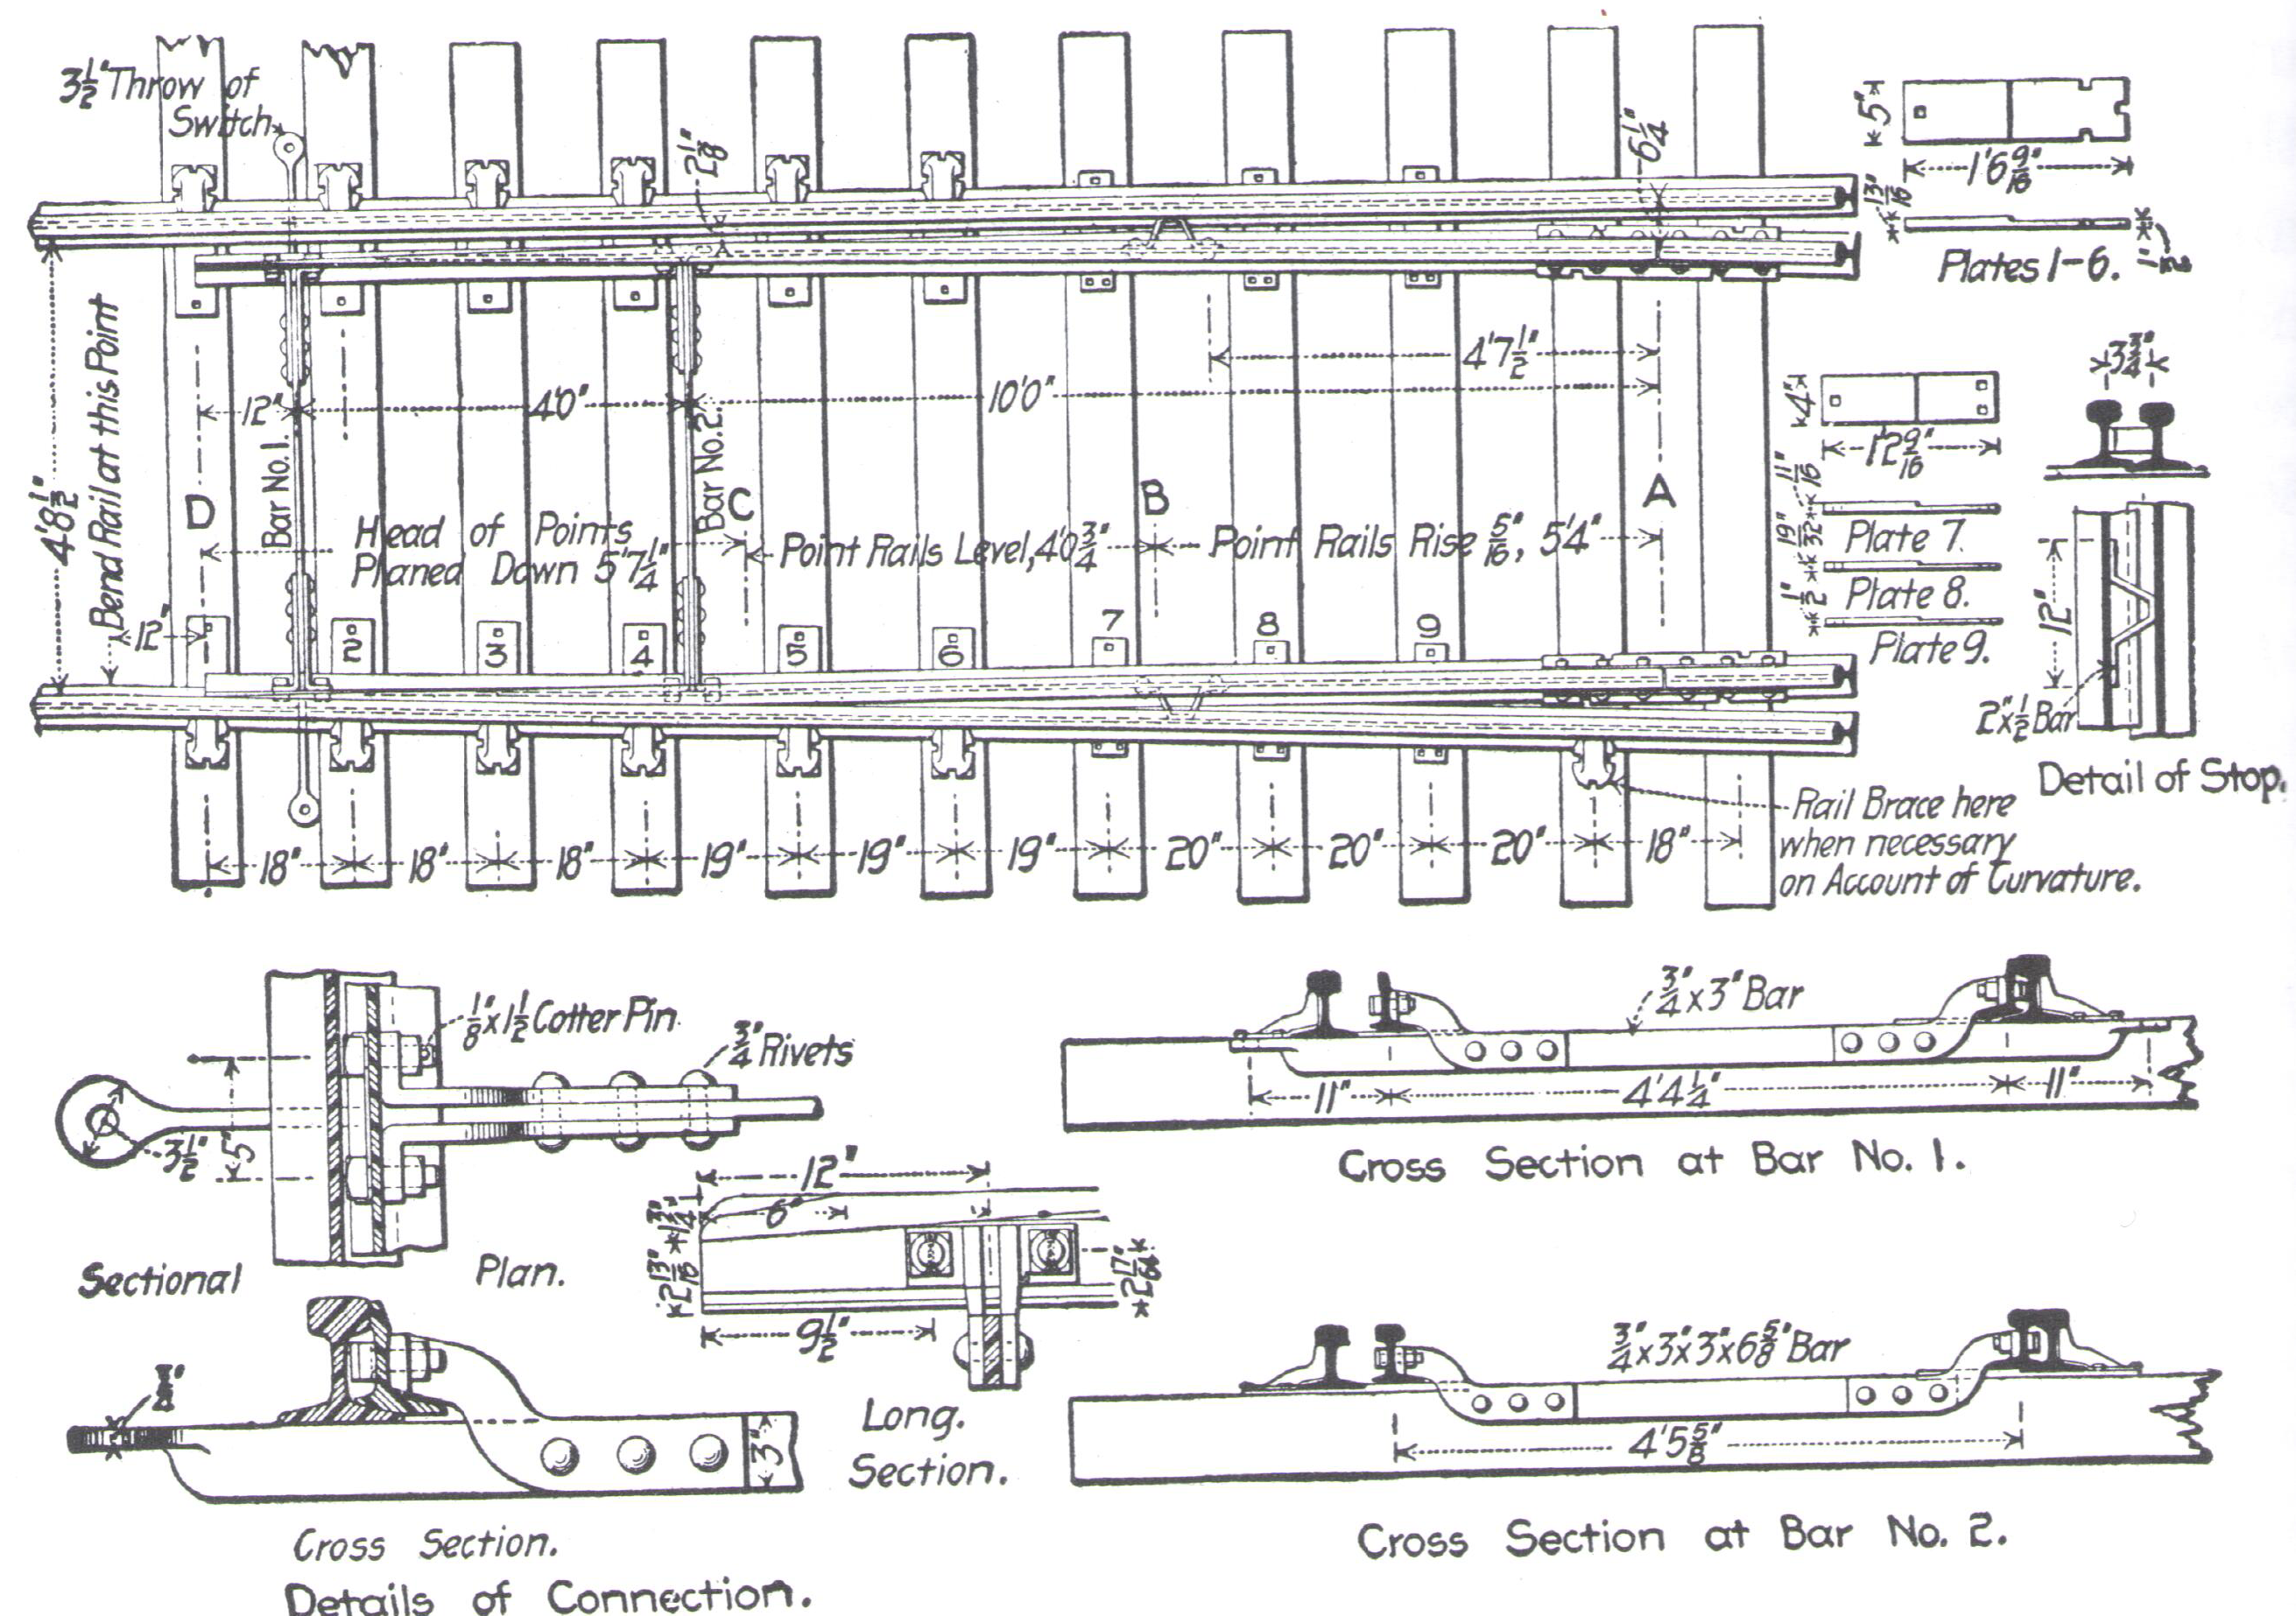 3 1/2" Throw of
Switch
2 1/8"
6 1/4"
5"
1'6 9/16"
13/16"
Plates 1-6.
1/2"
4'8 1/2"
Bend Rail at this Point
12"
12"
Bar No.1.
4'0"
Bar No.2.
10'0"
4'7 1/2"
D
C
B
A
Head of Points
Planed Down 5'7 1/4"
Point Rails Level, 4'0 3/4"
Point Rails Rise 5/16", 5'4"
2
3
4
5
6
7
8
9
4"
1'2 9/16"
11/16"
Plate 7.
19/32"
Plate 8.
1/2"
Plate 9.
3 3/4"
12"
2"x 1/2" Bar
Detail of Stop.
18"
18"
18"
19"
19"
19"
20"
20"
20"
18"
Rail Brace here
when necessary
on Account of Curvature.
1/8" x 1 1/2" Cotter Pin
3/4" Rivets
3 1/2"
5"
Sectional Plan.
12"
6"
1 3/4"
2 13/16"
2 17/64"
9 1/2"
Long.
Section.
3"
Cross Section.
Details of Connection.
3/4" x 3" Bar
11"
4'4 1/4"
11"
Cross Section at Bar No. 1.
3/4" x 3" x 3" x 6 5/8" Bar
4'5 5/8"
Cross Section at Bar No. 2.